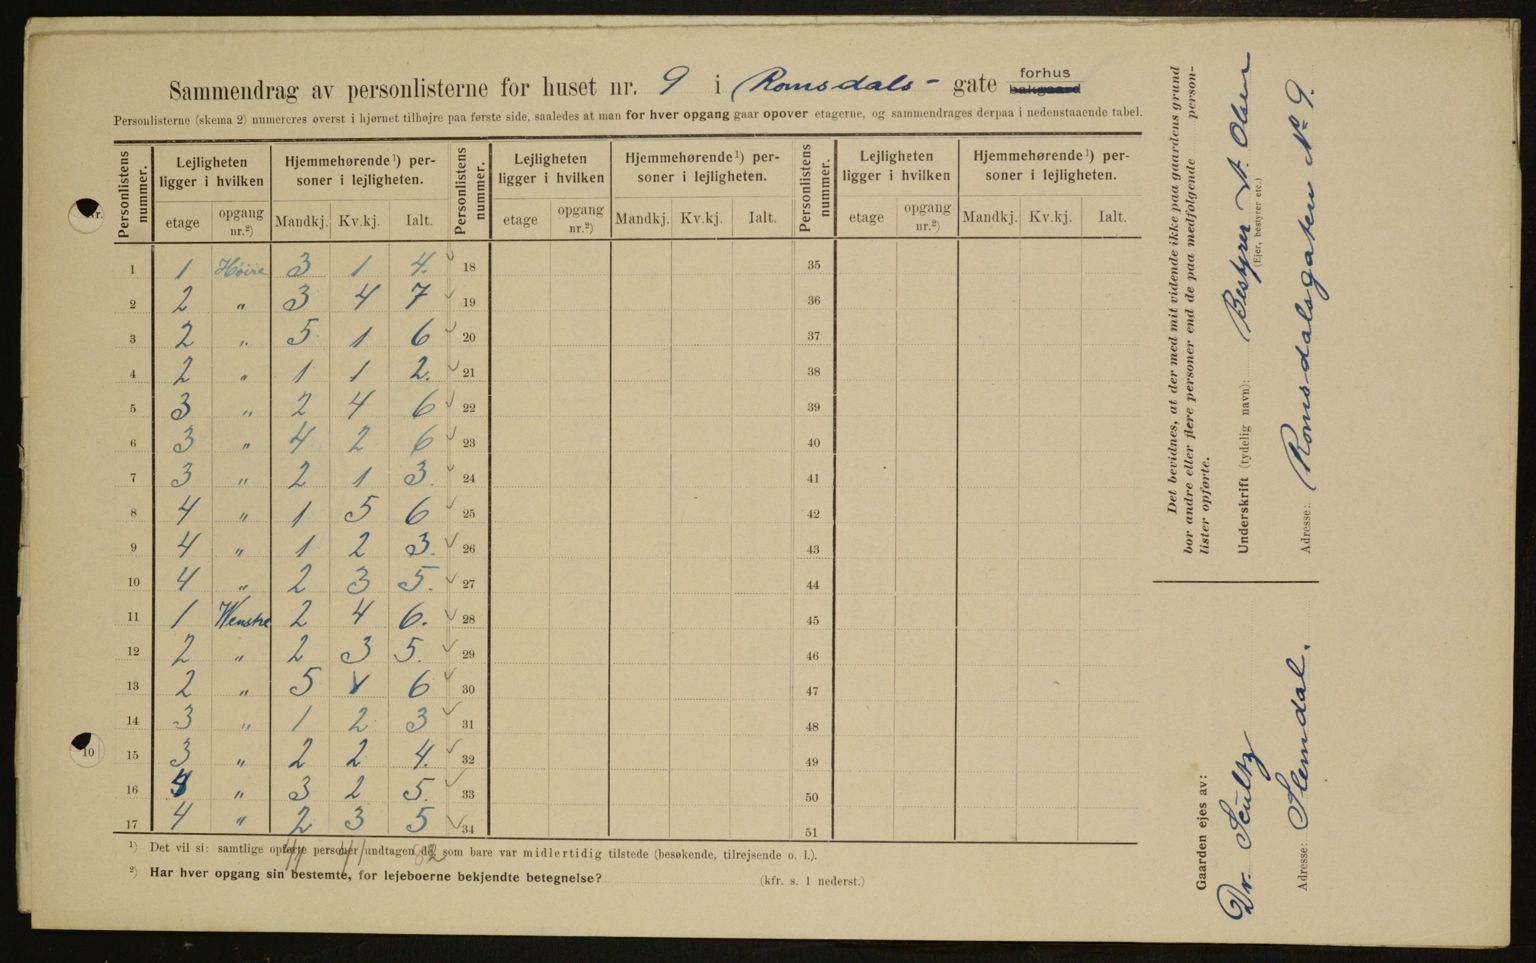 Sammendrag av personlisterne for huset nr. 9 i Romsdals- gate forhus bakgaard
Personlisterne (skema 2) numereres øverst i hjørnet tilhøjre paa første side, saaledes at man for hver opgang gaar opover etagerne, og sammendrages derpaa i nedenstaaende tabel.
Personlistens nummer. Lejligheten ligger i hvilken Hjemmehørende¹) personer i lejligheten. Personlistens nummer. Lejligheten ligger i hvilken Hjemmehørende¹) personer i lejligheten. Personlistens nummer. Lejligheten ligger i hvilken Hjemmehørende¹) personer i lejligheten.
etage opgang nr.²) Mandkj. Kv.kj. Ialt. etage opgang nr.²) Mandkj. Kv.kj. Ialt. etage opgang nr.²) Mandkj. Kv.kj. Ialt.
1 1 Høire 3 1 4. 18 35
2 2 " 3 4 7 19 36
3 2 " 5 1 6 20 37
4 2 " 1 1 2. 21 38
5 3 " 2 4 6 22 39
6 3 " 4 2 6 23 40
7 3 " 2 1 3. 24 41
8 4 " 1 5 6 25 42
9 4 " 1 2 3. 26 43
10 4 " 2 3 5. 27 44
11 1 Wenstre 2 4 6. 28 45
12 2 " 2 3 5. 29 46
13 2 " 5 1 6 30 47
14 3 " 1 2 3 31 48
15 3 " 2 2 4. 32 49
16 4 " 3 2 5. 33 50
17 4 " 2 3 5 34 51
¹) Det vil si: samtlige opførte personer undtagen de som bare var midlertidig tilstede (besøkende, tilrejsende o. l.).
41 41 82
²) Har hver opgang sin bestemte, for lejeboerne bekjendte betegnelse? (kfr. s. 1 nederst.)
Det bevidnes, at der med mit vidende ikke paa gaardens grund
bor andre eller flere personer end de paa medfølgende personlister opførte.
Underskrift (tydelig navn): Bestyrer A. Olsen
(Ejer, bestyrer etc.)
Adresse: Romsdalsgaten No 9.
Gaarden ejes av:
Dr. Scultz
Adresse: Slemdal.
10